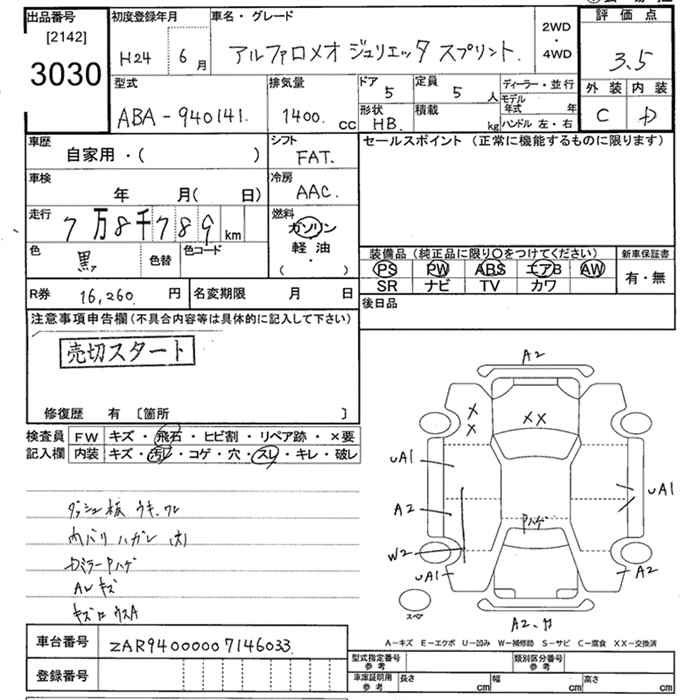 出品番号
[2142]
3030
初度登録年月
H24 6月
車名・グレード
アルファロメオ ジュリエッタ スプリント.
2WD
・
4WD
評価点
3.5
外装 内装
C D
型式
ABA-940141.
排気量
1400. cc
ドア
5
定員
5 人
形状
HB.
積載
kg
ディーラー・並行
モデル
年式 年
ハンドル 左・右
車歴
自家用・( )
シフト
FAT.
車検
年 月( 日)
冷房
AAC.
走行
7万8千789 km
燃料
ガソリン
軽油
( ・ )
色
黒
色替
色コード
R券 16,260 円
名変期限 月 日
セールスポイント (正常に機能するものに限ります)
装備品 (純正品に限り○をつけてください)
PS PW ABS エアB AW
SR ナビ TV カワ
新車保証書
有・無
後日品
注意事項申告欄 (不具合内容等は具体的に記入して下さい)
売切スタート
修復歴 有 〔箇所 〕
検査員
記入欄
FW キズ・飛石・ヒビ割・リペア跡・×要
内装 キズ・汚レ・コゲ・穴・スレ・キレ・破レ
ダッシュ板 ウキ.ワレ
内バリ ハガレ 大)
ALキズ
A2
XX
X
X
UA1
A2
W2
UA1
Pハゲ
UA1
A2
スペア
A2.カ
A-キズ E-エクボ U-凹み W-補修跡 S-サビ C-腐食 XX-交換済
車台番号 ZAR94000007146033
登録番号
型式指定番号
参考
類別区分番号
参考
車庫証明用
参考
長さ cm 幅 cm 高さ cm